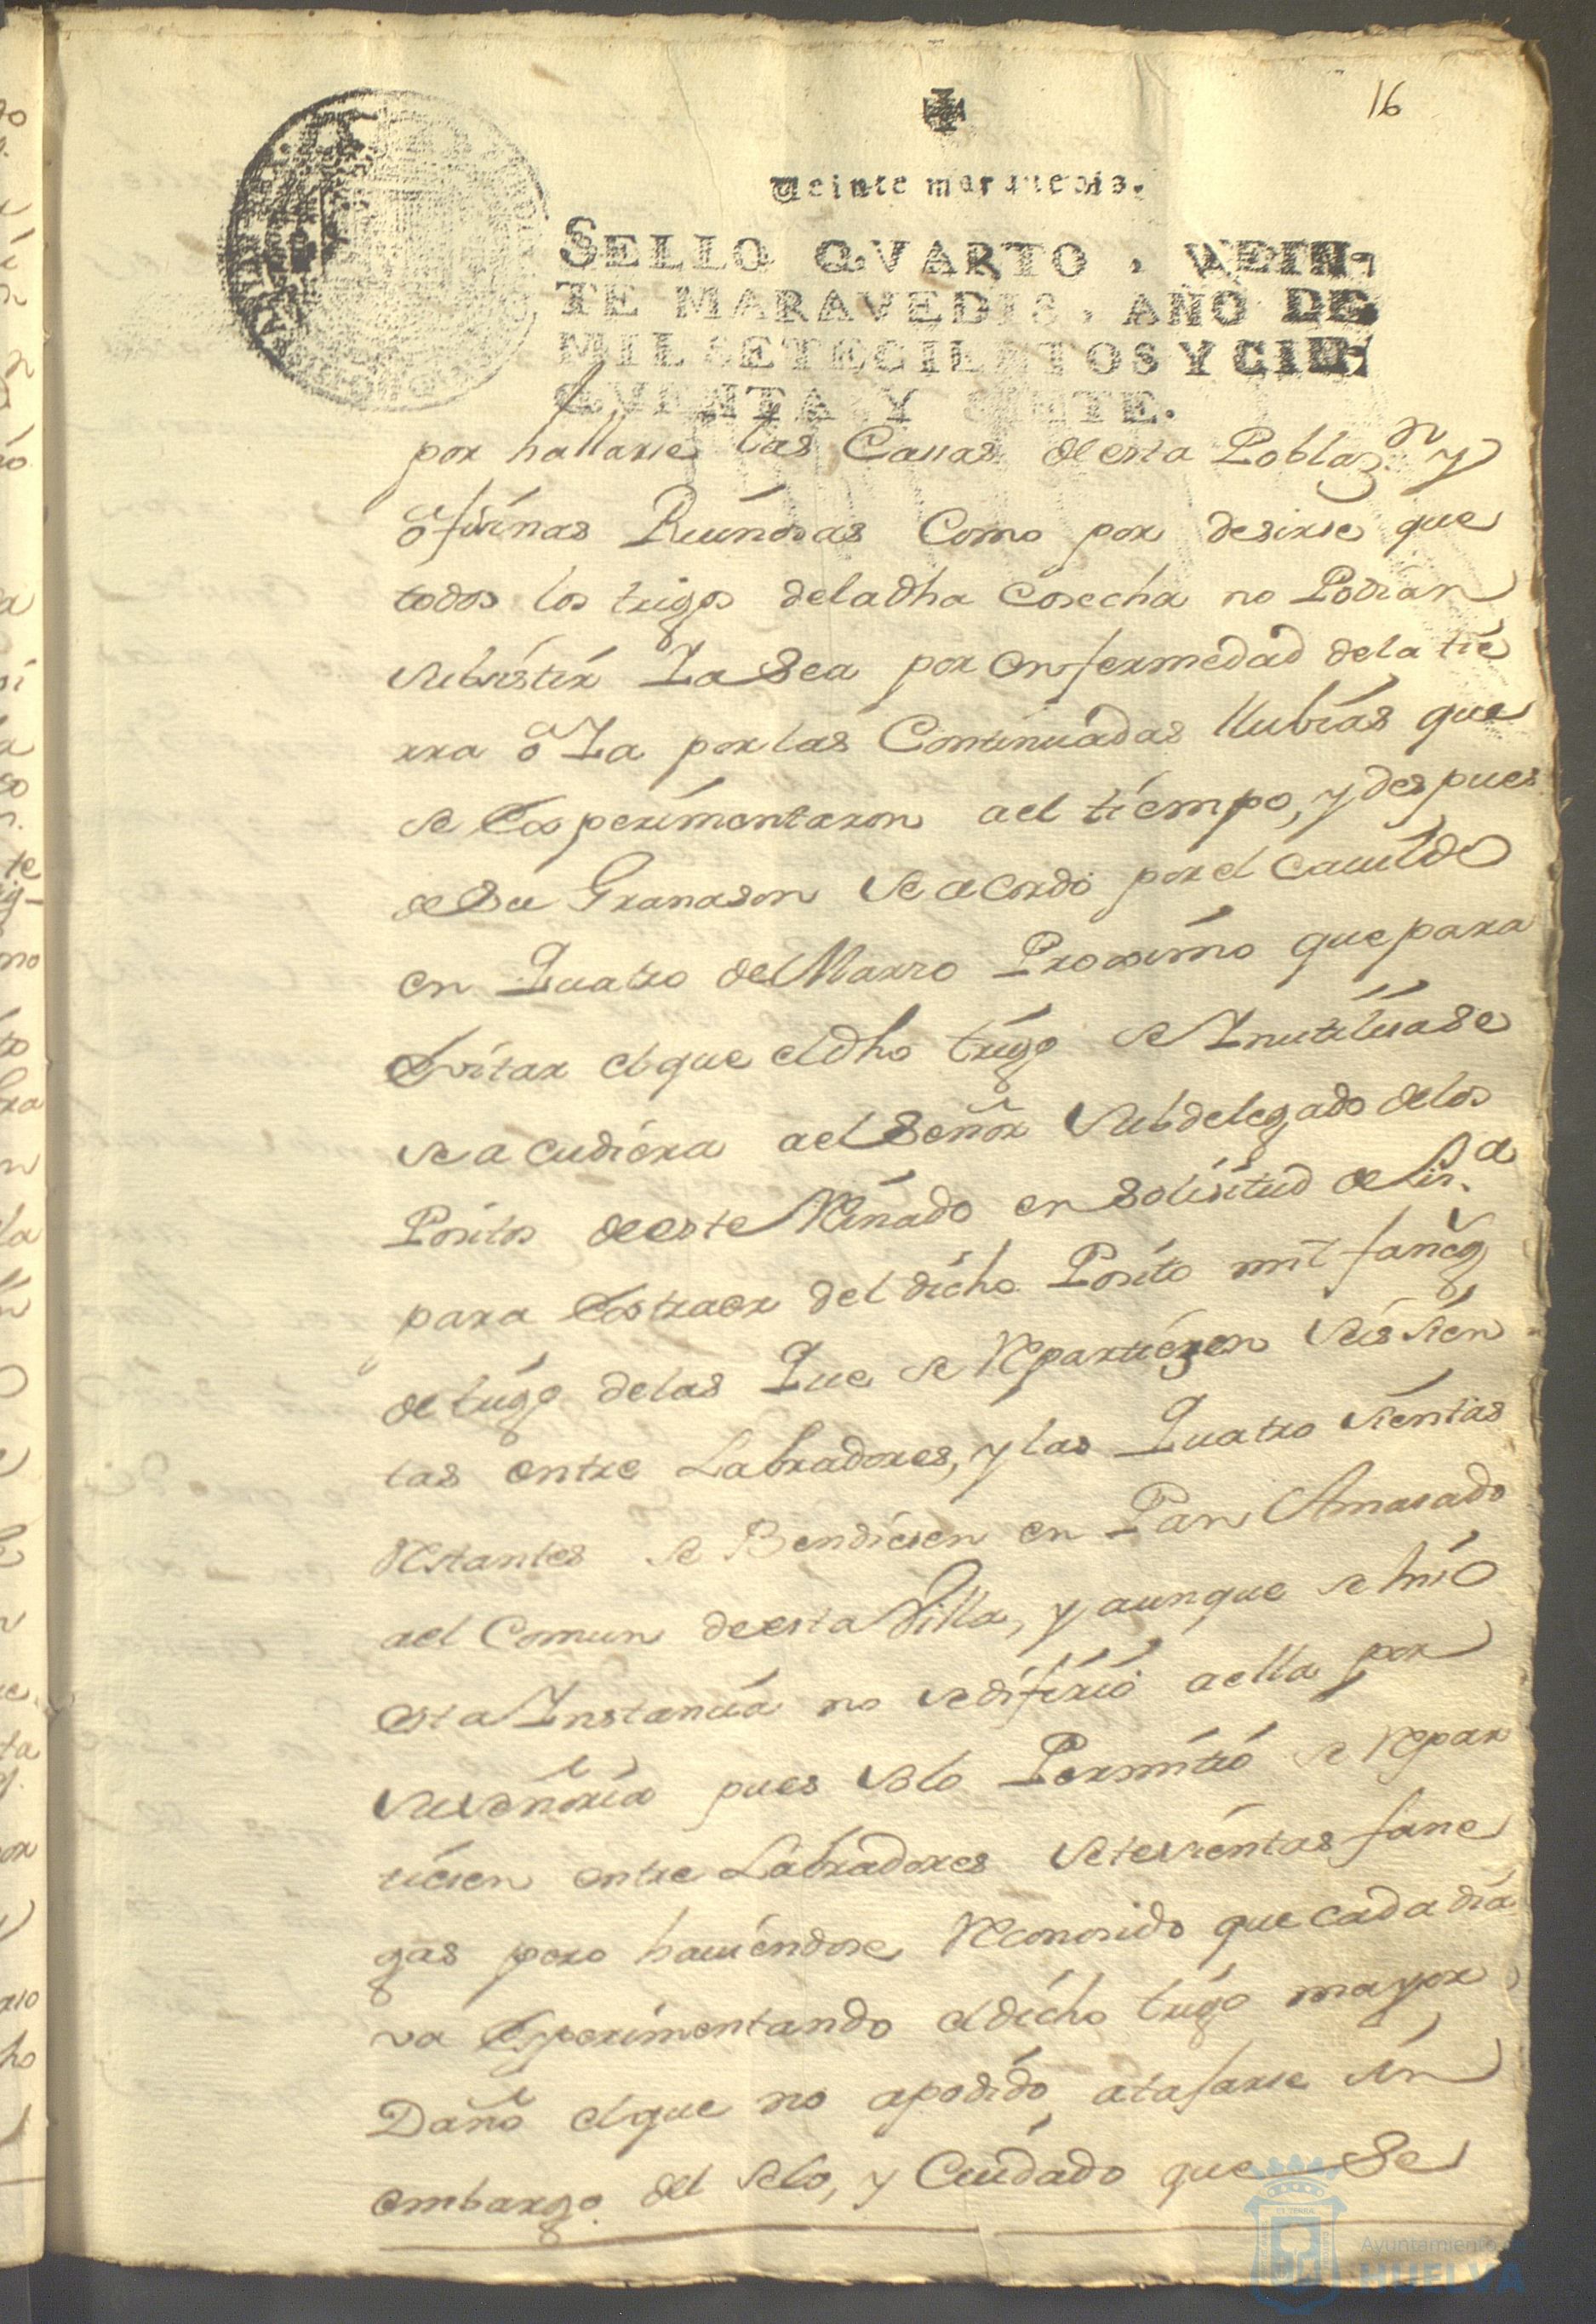 16
Veinte maravedis.
SELLO QVARTO, VEIN-
TE MARAVEDIS, AÑO DE
MIL SETECIENTOS Y CIN-
QVENTA Y SIETE.
por hallarse las Casas de esta Poblaz.on y
ofisinas Ruinosas Como por desirse que
todos los trigos dela dha Cosecha no Podian
subsistir Ya Sea por enfermedad dela tie
rra o Ya por las Continuadas llubias que
se Experimentaron ael tiempo, y despues
de Su Granason se acordo por el Cauildo
en Quatro de Marzo Proximo que para
Evitar el que el dho trigo se Inutilisase
se acudiera ael Señor Subdelegado delos
Positos de este Reinado en Solisitud de lis.a
para Extraer del dicho Posito mil faneg
de trigo delas Que se Repartiesen Seis sien
tas entre Labradores, y las Quatro sientas
Restantes se Bendiesen en Pan Amasado
ael Comun de esta Villa, y aunque se hiso
esta Instancia no se difirio a ella por
su señoria pues solo Permitio se Repar
tiesen entre Labradores setesientas fane
gas pero hauiendose Reconosido que cada dia
va Esperimentando el dicho trigo mayor
Daño el que no apodido atajarse sin
embargo del selo, y Cuidado que Se
Ayuntamiento
HUELVA